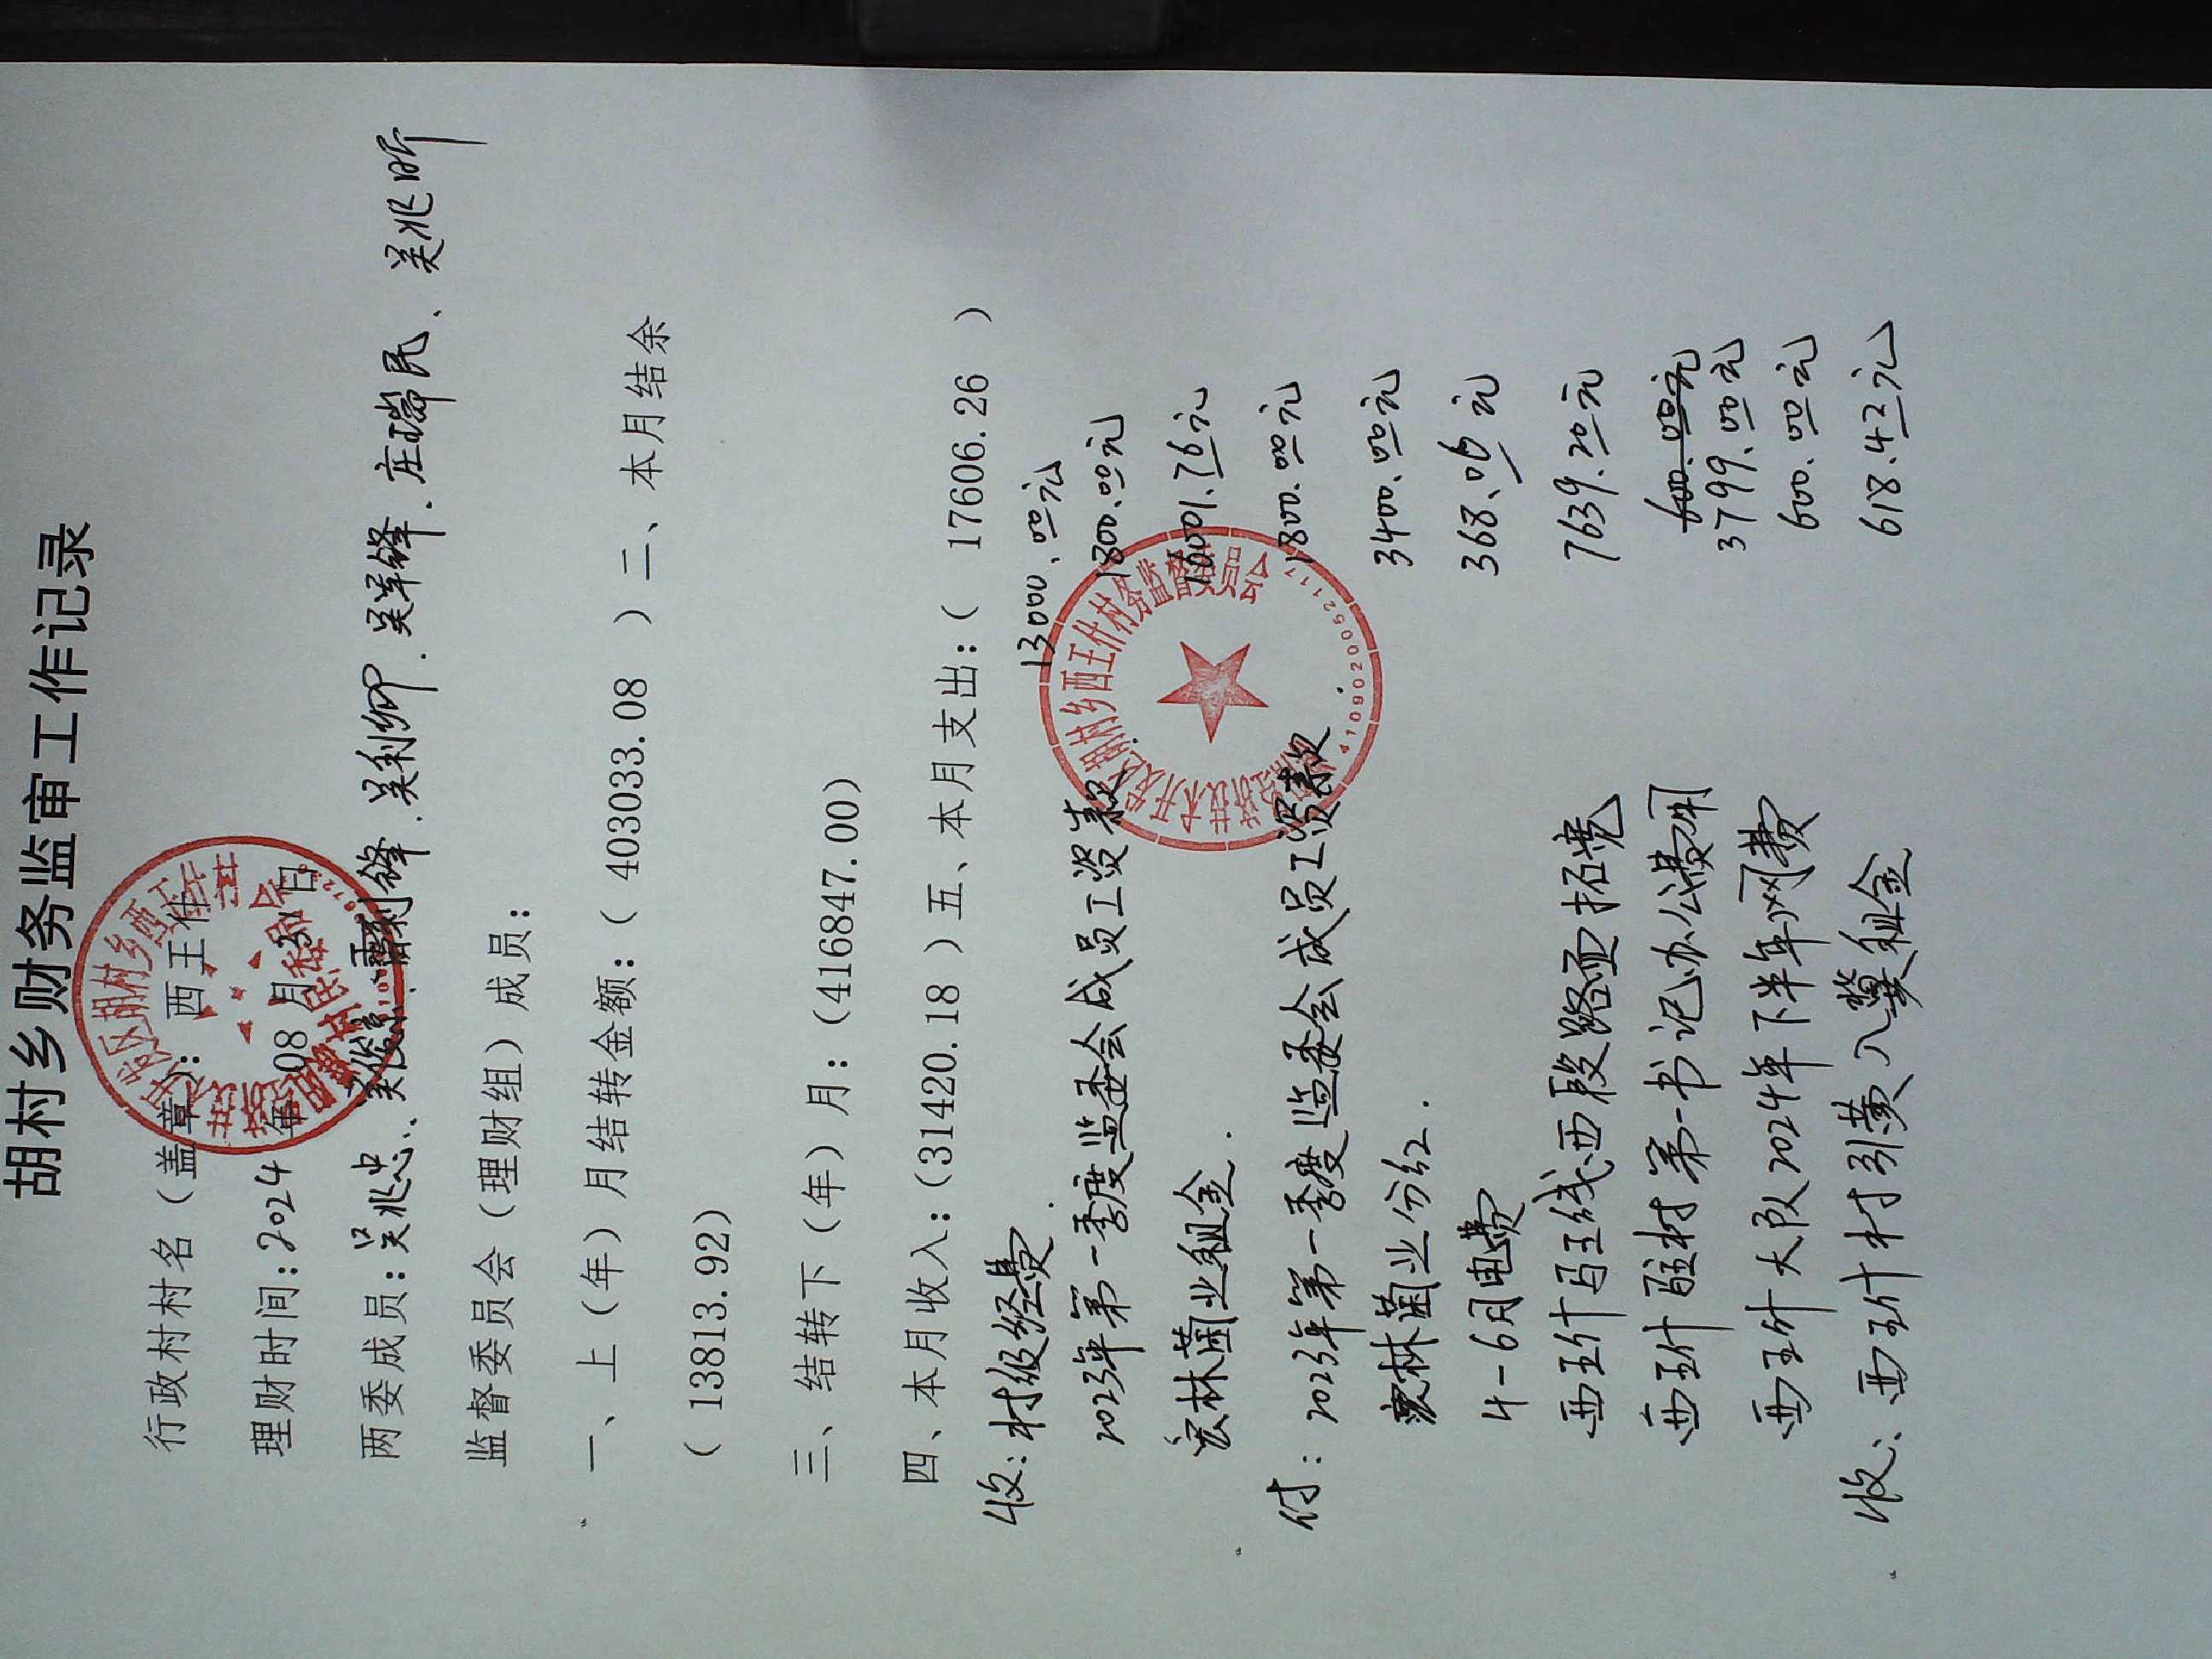 胡村乡财务监审工作记录
行政村村名（盖章）：西王什
理财时间:2024年 08 月 日
两委成员：吴兆忠、吴俊 利锋、吴利卿、吴军锋、庄瑞民、吴兆昕
监督委员会（理财组）成员：
一、上（年）月结转金额：（ 403033.08 ）二、本月结余
（ 13813.92）
三、结转下（年）月：（416847.00）
四、本月收入：（31420.18 ）五、本月支出：（ 17606.26 ）
收：村级经费. 13000.00元
2023年第一季度监委会成员工资款. 1800.00元
宏林菌业租金. 16001.76元
付：2023年第一季度监委会成员工资款. 1800.00元
宏林菌业分红. 3400.00元
4-6月电费 368.06元
西王什马王线西段路面拓宽 7639.20元
600.00元
西王什驻村第一书记办公费用 3799.00元
西王什大队2024年下半年网费 600.00元
收：西王什村引黄入冀租金 618.42元
胡村乡西王什村务监督委员会
4109020052117